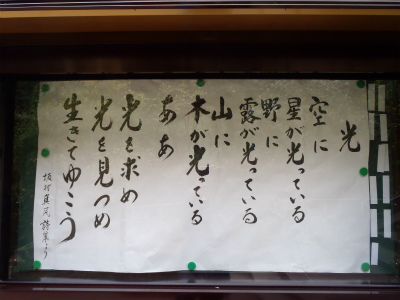 光
空に
星が光っている
野に
露が光っている
山に
木が光っている
ああ
光を求め
光を見つめ
生きてゆこう
坂村真民詩集より